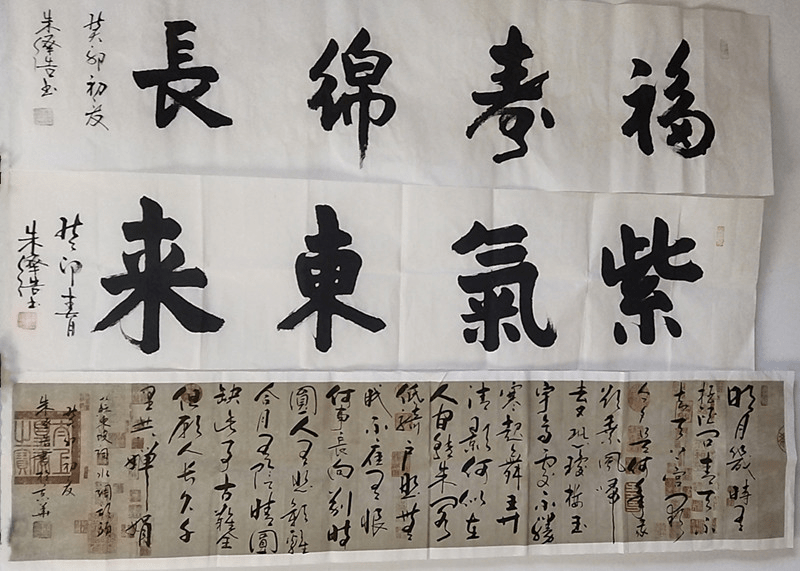 福寿綿長
癸卯初夏
紫氣東来
癸卯春月
明月幾時有
把酒问青天不
知天上宫闕
今夕是何年我
欲乘風歸
去又恐瓊樓玉
宇高處不勝
寒起舞弄
清影何似在
人间轉朱阁
低綺户照無
眠不應有恨
何事長向别時
圓人有悲歡離
合月有陰晴圓
缺此事古難全
但願人長久千
里共嬋娟
蘇東坡词水调歌頭
癸卯初夏